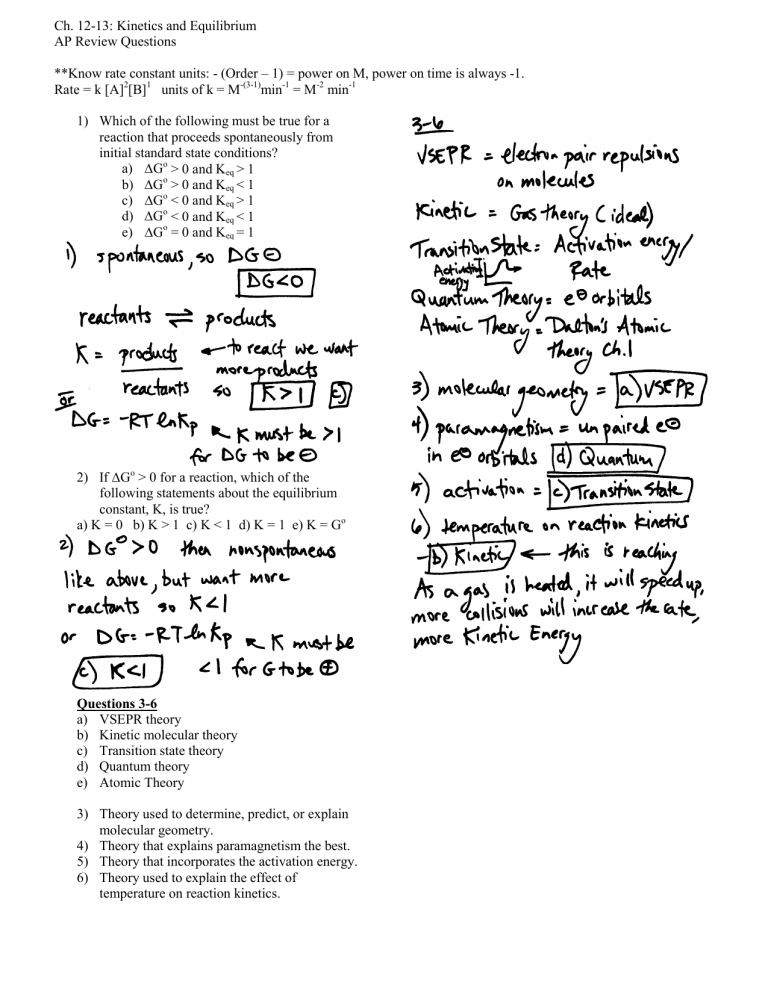 Ch. 12-13: Kinetics and Equilibrium
AP Review Questions
**Know rate constant units: - (Order – 1) = power on M, power on time is always -1.
Rate = k [A]²[B]¹ units of k = M⁻⁽³⁻¹⁾min⁻¹ = M⁻² min⁻¹
1) Which of the following must be true for a
reaction that proceeds spontaneously from
initial standard state conditions?
a) ΔG° > 0 and Keq > 1
b) ΔG° > 0 and Keq < 1
c) ΔG° < 0 and Keq > 1
d) ΔG° < 0 and Keq < 1
e) ΔG° = 0 and Keq = 1
1) spontaneous, so DG⊖
DG<0
reactants ⇌ products
K = products ← to react we want
more products
reactants so K>1 c)
or
DG= -RT ln Kp ↖ K must be >1
for DG to be ⊖
2) If ΔG° > 0 for a reaction, which of the
following statements about the equilibrium
constant, K, is true?
a) K = 0 b) K > 1 c) K < 1 d) K = 1 e) K = G°
2) DG°>0 then nonspontaneous
like above, but want more
reactants so K<1
or DG= -RT ln Kp ↖ K must be
c) K<1 <1 for G to be ⊕
Questions 3-6
a) VSEPR theory
b) Kinetic molecular theory
c) Transition state theory
d) Quantum theory
e) Atomic Theory
3) Theory used to determine, predict, or explain
molecular geometry.
4) Theory that explains paramagnetism the best.
5) Theory that incorporates the activation energy.
6) Theory used to explain the effect of
temperature on reaction kinetics.
3-6
VSEPR = electron pair repulsions
on molecules
Kinetic = Gas theory (ideal)
Transition State = Activation energy/
Activation energy
Rate
Quantum Theory = e⊖ orbitals
Atomic Theory = Dalton's Atomic
theory Ch.1
3) molecular geometry = a) VSEPR
4) paramagnetism = unpaired e⊖
in e⊖ orbitals d) Quantum
5) activation = c) Transition State
6) temperature on reaction kinetics
b) Kinetic ← this is reaching
As a gas is heated, it will speed up,
more collisions will increase the rate,
more Kinetic Energy